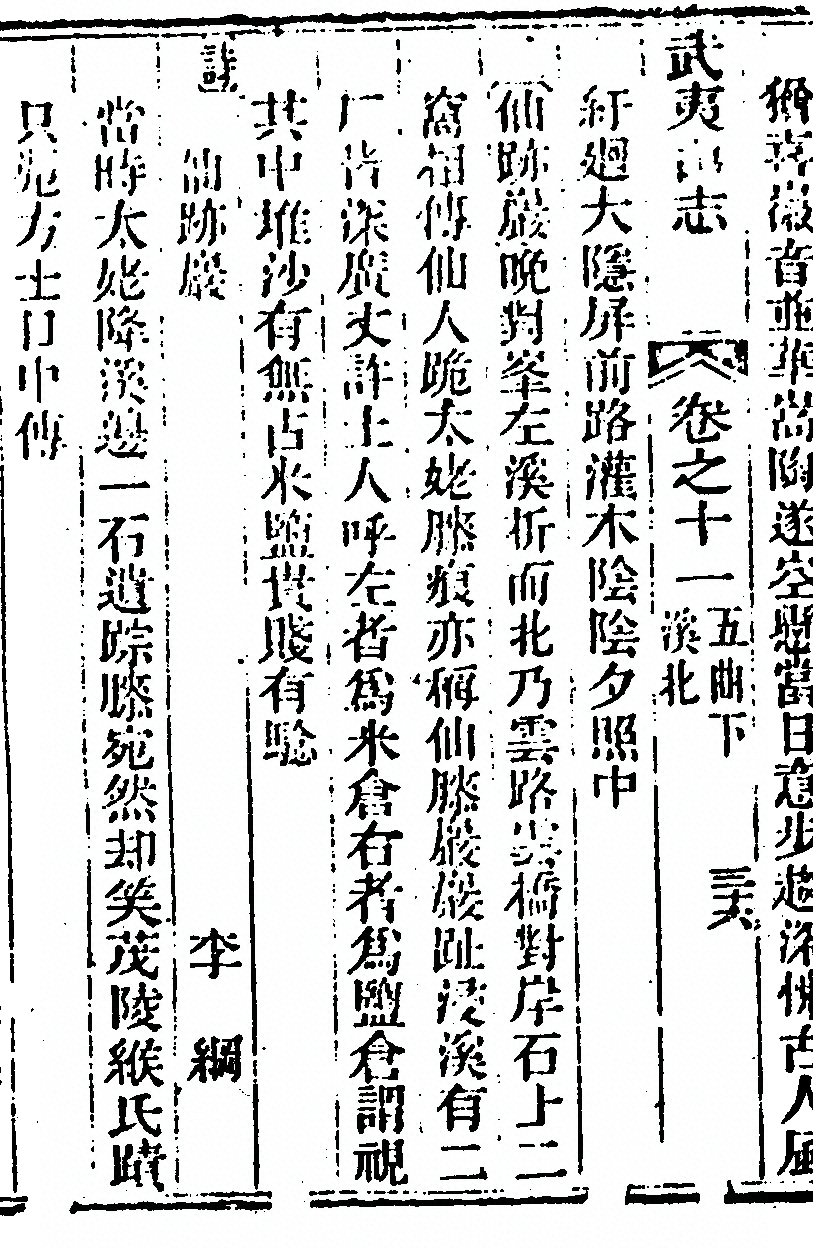 猶喜嶽音並華嵩陶遂空懸當日意步趨深佩古人風
武夷山志 卷之十一 五曲下 溪北 三六
紆廻大隱屏前路灌木陰陰夕照中
仙跡巖晚對峯左溪折而北乃雲路裳橋對岸石上二
窩相傳仙人跪太姥膝痕亦稱仙膝巖巖趾浸溪有二
厂皆深廣丈許土人呼左者爲米倉右者爲鹽倉謂視
其中堆沙有無占米鹽貴賤有驗
詩 仙跡巖 李綱
當時太姥降溪邊一石遺踪膝宛然却笑茂陵緱氏蹟
只憑方士口中傳